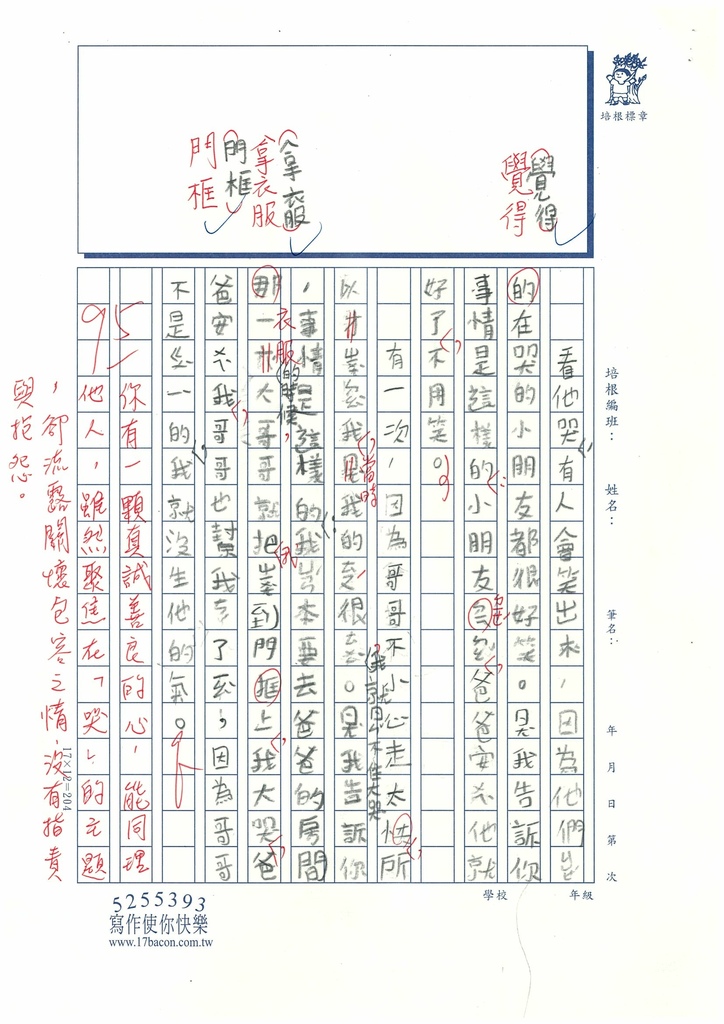 培根標章
覺得
覺得
拿衣服
拿衣服
門框
門框
培根編班：
姓名：
筆名：
年 月 日 第 次
學校
年級
看他哭有人會笑出來，因為他們
的在哭的小朋友都很好笑。告訴你
事情是這樣的小朋友爸爸安他就
好了不用笑。
有一次，因為哥哥不小心走太所
以我我的很。我告訴你
我就忍不住大哭
當時
，事情是這樣的我本要去爸爸的房間
的時候，
衣服
那一大哥哥就把到門框上我大哭爸
爸安我哥哥也幫我了，因為哥哥
不是一的我就沒生他的氣。
你有一顆真誠善良的心，能同理
他人，雖然聚焦在「哭」的主題
，卻流露關懷包容之情，沒有指責
與抱怨。
95
17×12=204
5255393
寫作使你快樂
www.17bacon.com.tw